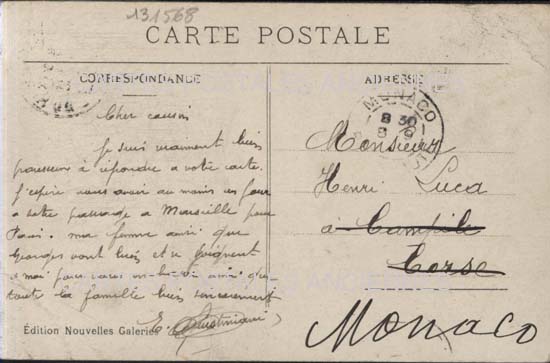 131568
CARTE POSTALE
CORRESPONDANCE
ADRESSE
MONACO
8 30
Cher cousin
Je suis vraiment bien
paresseux à répondre a votre carte.
J'espère vous avoir au moins un jour
a votre passage a Marseille pour
Paris. ma femme ainsi que
Georges vont bien et se joignent
a moi pour vous ainsi que
toute la famille bien sincerement
Monsieur
Henri Luca
à Campile
Corse
Monaco
Édition Nouvelles Galeries